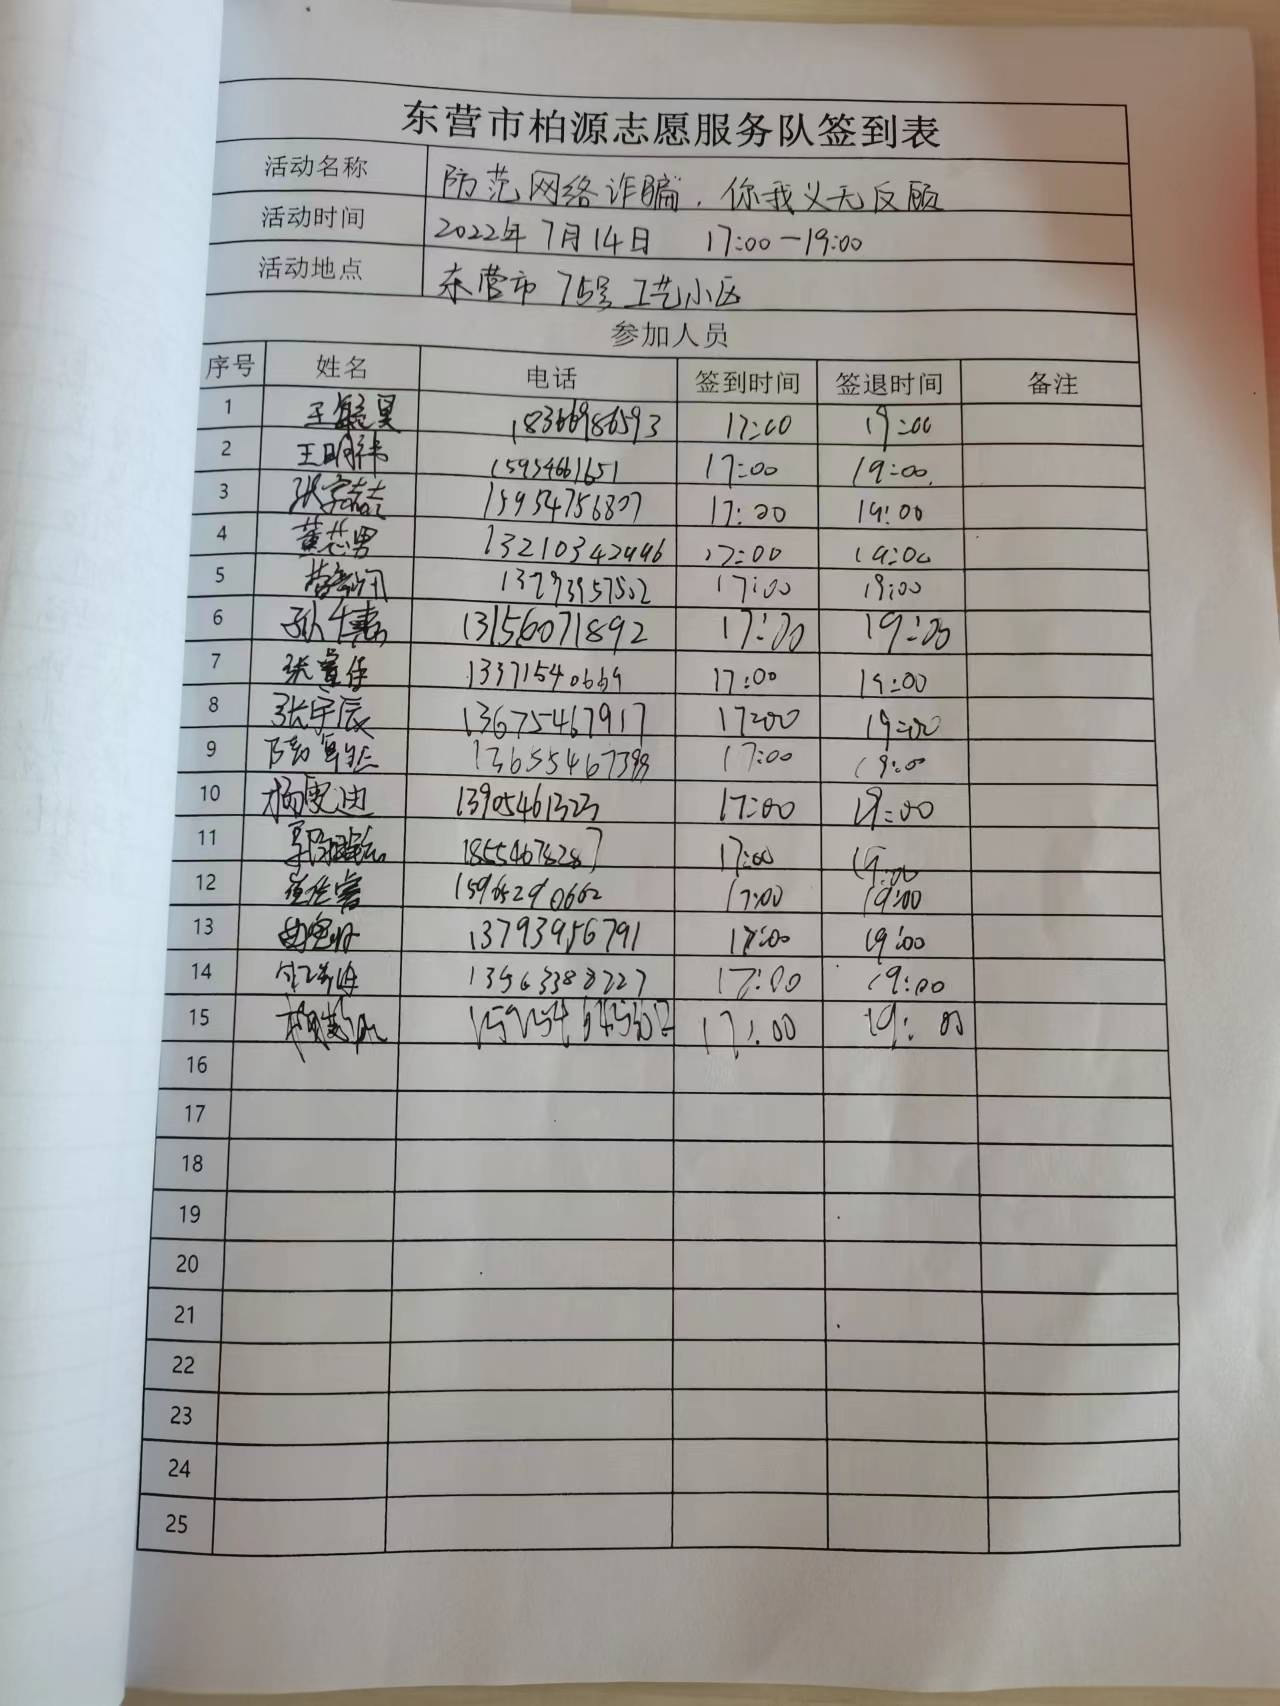 东营市柏源志愿服务队签到表
活动名称 防范网络诈骗，你我义无反顾
活动时间 2022年7月14日 17:00-19:00
活动地点 东营市 75号 工艺小区
参加人员
序号 姓名 电话 签到时间 签退时间 备注
1 18366986593 17:00 19:00
2 王明祎 15954661651 17:00 19:00
3 15954756807 17:00 19:00
4 黄芯男 17:00 19:00
5 13793957502 17:00 19:00
6 13156071892 17:00 19:00
7 张童佳 13371540669 17:00 19:00
8 张宇辰 13675467917 17:00 19:00
9 17:00 19:00
10 杨雯迪 13905461323 17:00 19:00
11 18554678287 17:00 19:00
12 15965290662 17:00 19:00
13 13793956791 17:00 19:00
14 13963388227 17:00 19:00
15 17:00 19:00
16
17
18
19
20
21
22
23
24
25